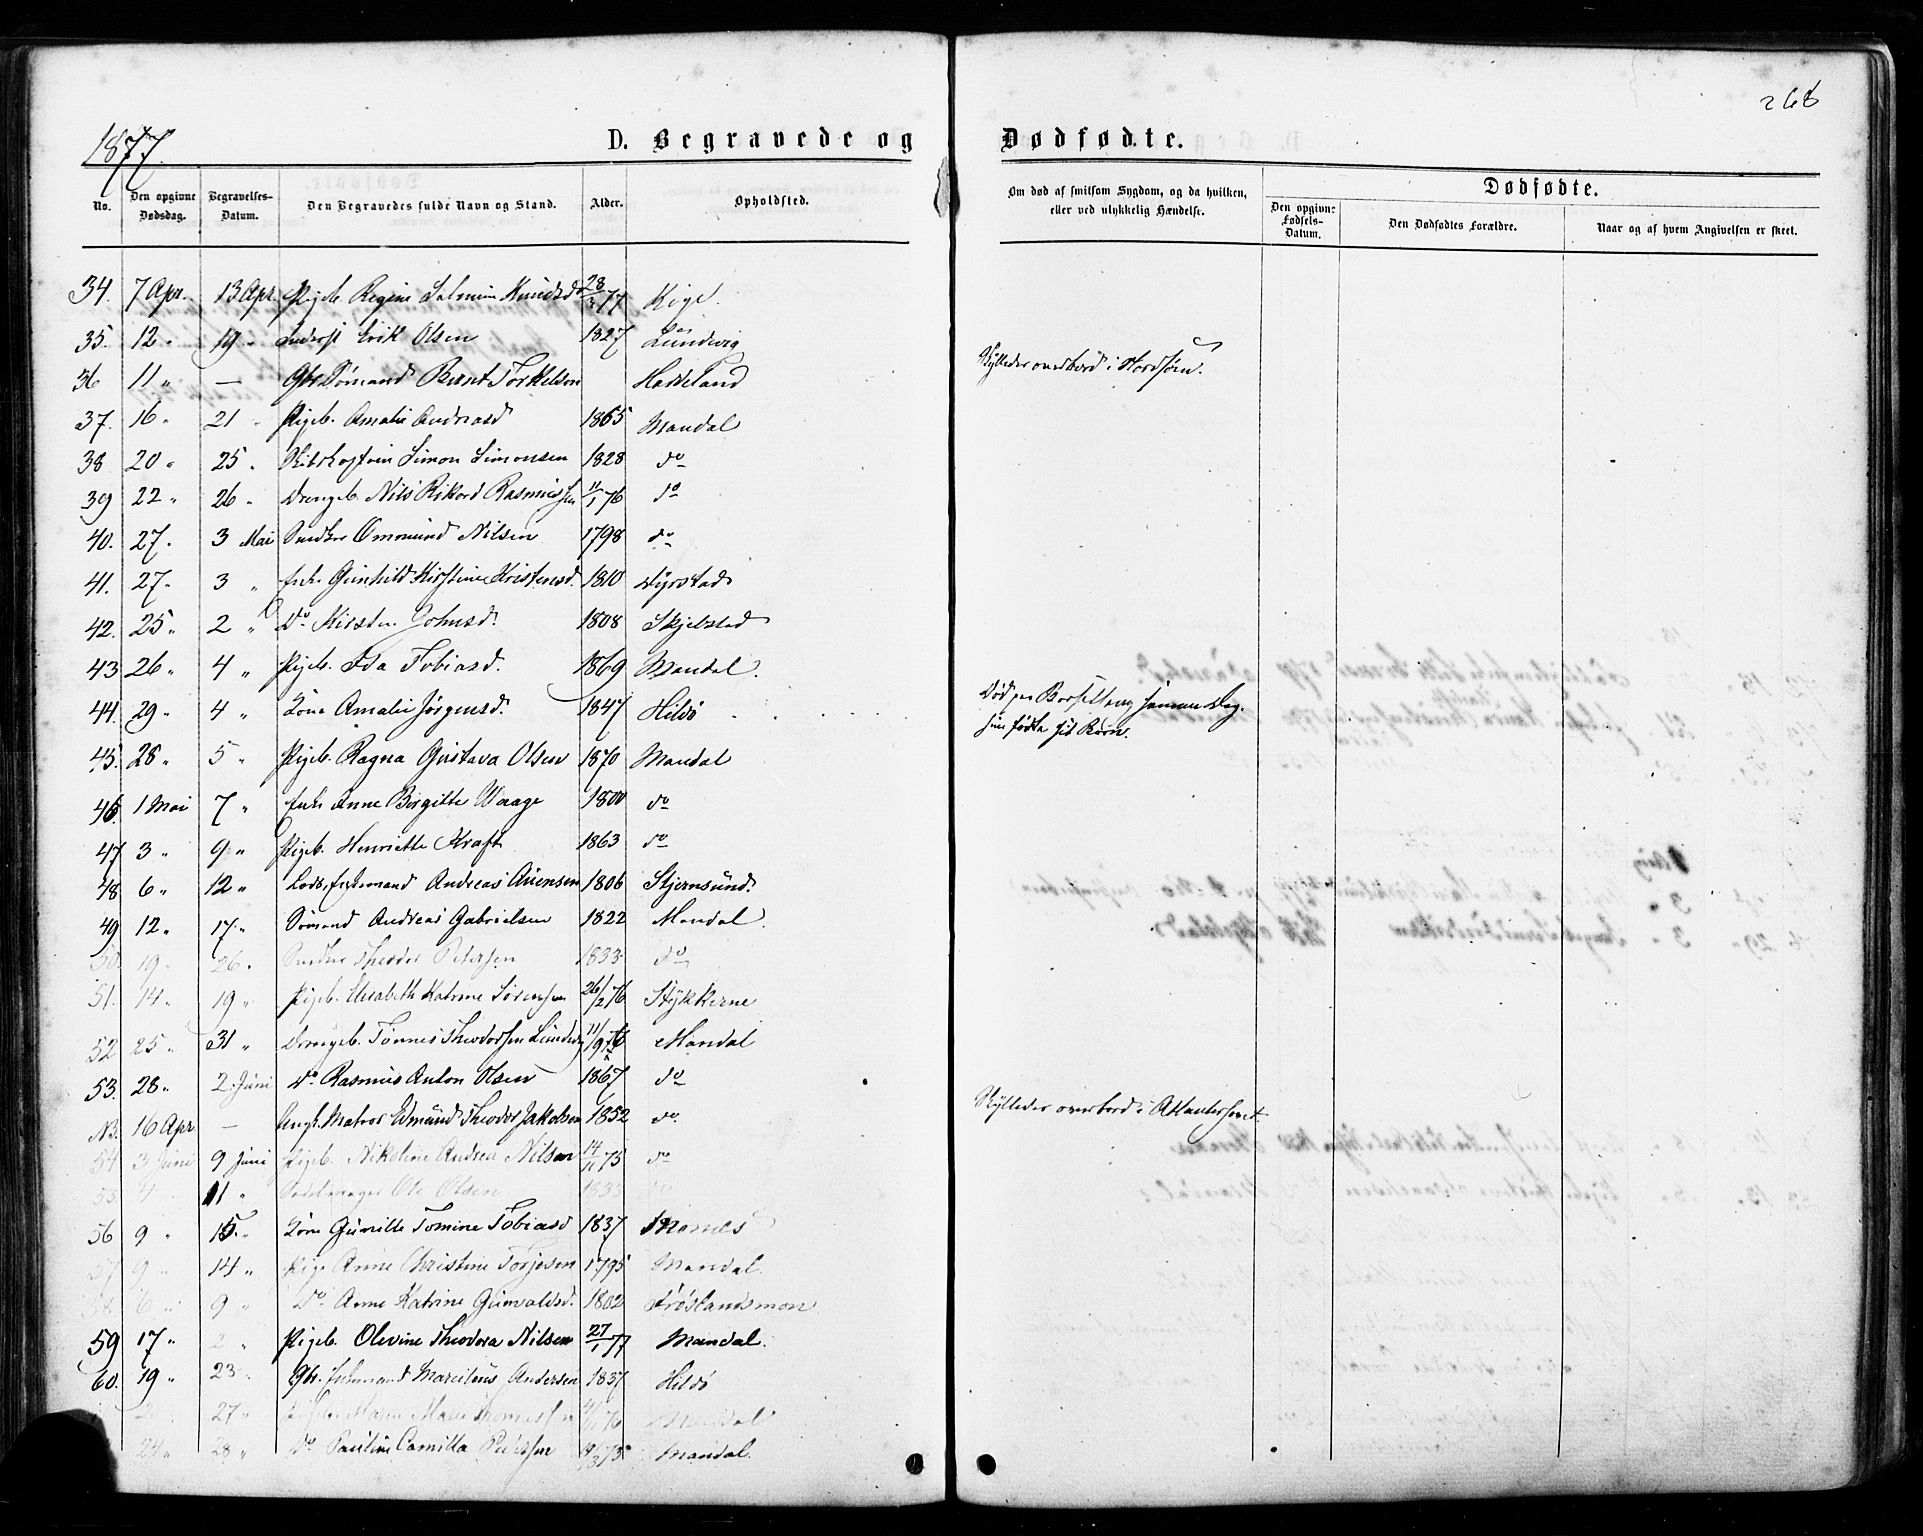 268
1877.
D. Begravede og Dødfødte.
No.
Den opgivne Dødsdag.
Begravelses-Datum.
Den Begravedes fulde Navn og Stand.
Alder.
Opholdsted.
Om død af smitsom Sygdom, og da hvilken, eller ved ulykkelig Hændelse.
Dødfødte.
Den opgivne Fødsels-Datum.
Den Dødfødtes Forældre.
Naar og af hvem Angivelsen er skeet.
34. 7 Apr. 13 Apr. Pigeb. Regine Knudsd. 28/3 77
35. 12 " 19 " Erik Olsen 1827 Lundevig
36 11 " — Gbr Sømand Bernt Torkelsen Hasseland Skylledes overbord i Nordsøen.
37. 16 " 21 " Pigeb. Amalie Andreasd 1865 Mandal
38 20 " 25 " Simon Simonsen 1828 do
39 22 " 26 " Drengeb. Nils Rikord Rasmussen 11/1 76 do
40. 27. 3 Mai Snedker Ommund Nilsen 1798 do
41. 27. 3 " Enke Gunhild Kirstine Kristensd. 1810 Dyrstad
42. 25 " 2 " Do Kirsten Johnsd. 1808 Skjebstad
43 26 " 4 " Pigeb. Ida Tobiasd. 1869 Mandal.
44. 29 " 4 " Kone Amalie Jørgensd. 1847 Hildø Død paa Barselseng samme Dag hun fødte sit Barn.
45. 28 " 5 " Pigeb. Ragna Gustava Olsen 1870 Mandal
46. 1 Mai 7 " Enke Anne Birgitte Waage 1800 do
47 3 " 9 " Pigeb. Henriette Kraft 1863 do
48 6 " 12 " Lods, Enkemand Andreas Auensen 1806 Stjernsund.
49 12 " 17 " Sømand Andreas Gabrielsen 1822 Mandal.
50. 19 " 26 " Snedker Theodor Petersen 1833 do
51. 14 " 19 " Pigeb. Elisabeth Katrine Sørensen 26/2 76 Stykkerne
52 25 " 31 " Drengeb. Tønnes Theodorsen Lundevig 11/9 76 Mandal
53. 28 " 2 Juni Do Rasmus Anton Olsen 1867 do
NB. 16 Apr — Ungk. Matros Edmund Theodor Jakobsen 1852 do Skylledes overbord i Atlanterhavet
54 3 Juni 9 Juni Pigeb. Nikoline Andrea Nilsen 14/11 75 do
55 4 " 11 " Sadelmager Ole Olsen 1833
56 9 " 15 " Kone Gunille Tomine Tobiasd 1837
57 9 " 14 " Pige Anne Christine Torjesen 1795 Mandal.
58 6 " 9 " Do Anne Katrine Gunvaldsd. 1802 Frøslandsmon
59 17 " 2 " Pigeb. Olevine Theodora Nilsen 27/1 77 Mandal.
60. 19 " 23 " Gbr. Enkemand Marcelius Andersen 1837 Hildø
27 " Maren Marie 76 Mandal
24 " 28 " Do Pauline Camilla Petersen 73 Mandal.